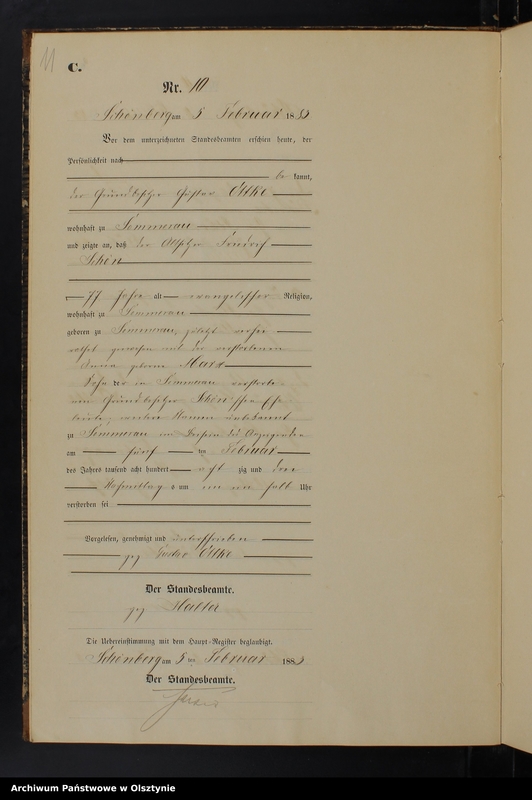 11
C.
Nr. 10
Schönberg am 5 Februar 1883
Vor dem unterzeichneten Standesbeamten erschien heute, der
Persönlichkeit nach
be kannt,
der Grundbesitzer Gustav Ottke
wohnhaft zu Sommerau
und zeigte an, daß der Altsitzer Friedrich
Schön
77 Jahre alt evangelischer Religion,
wohnhaft zu Sommerau
geboren zu Sommerau, zuletzt verhei
rathet gewesen mit der verstorbenen
Anna geborne
Sohn der in Sommerau verstorbe
nen Grundbesitzer Schön'schen Ehe
leute, weitere Namen unbekannt
zu Sommerau in des Anzeigenden
am fünf ten Februar
des Jahres tausend acht hundert acht zig und drei
Nachmittag s um ein ein halb Uhr
verstorben sei
Vorgelesen, genehmigt und unterschrieben
gez Ottke
Der Standesbeamte.
gez
Die Uebereinstimmung mit dem Haupt-Register beglaubigt.
Schönberg am 5 ten Februar 1883
Der Standesbeamte.
Archiwum Państwowe w Olsztynie